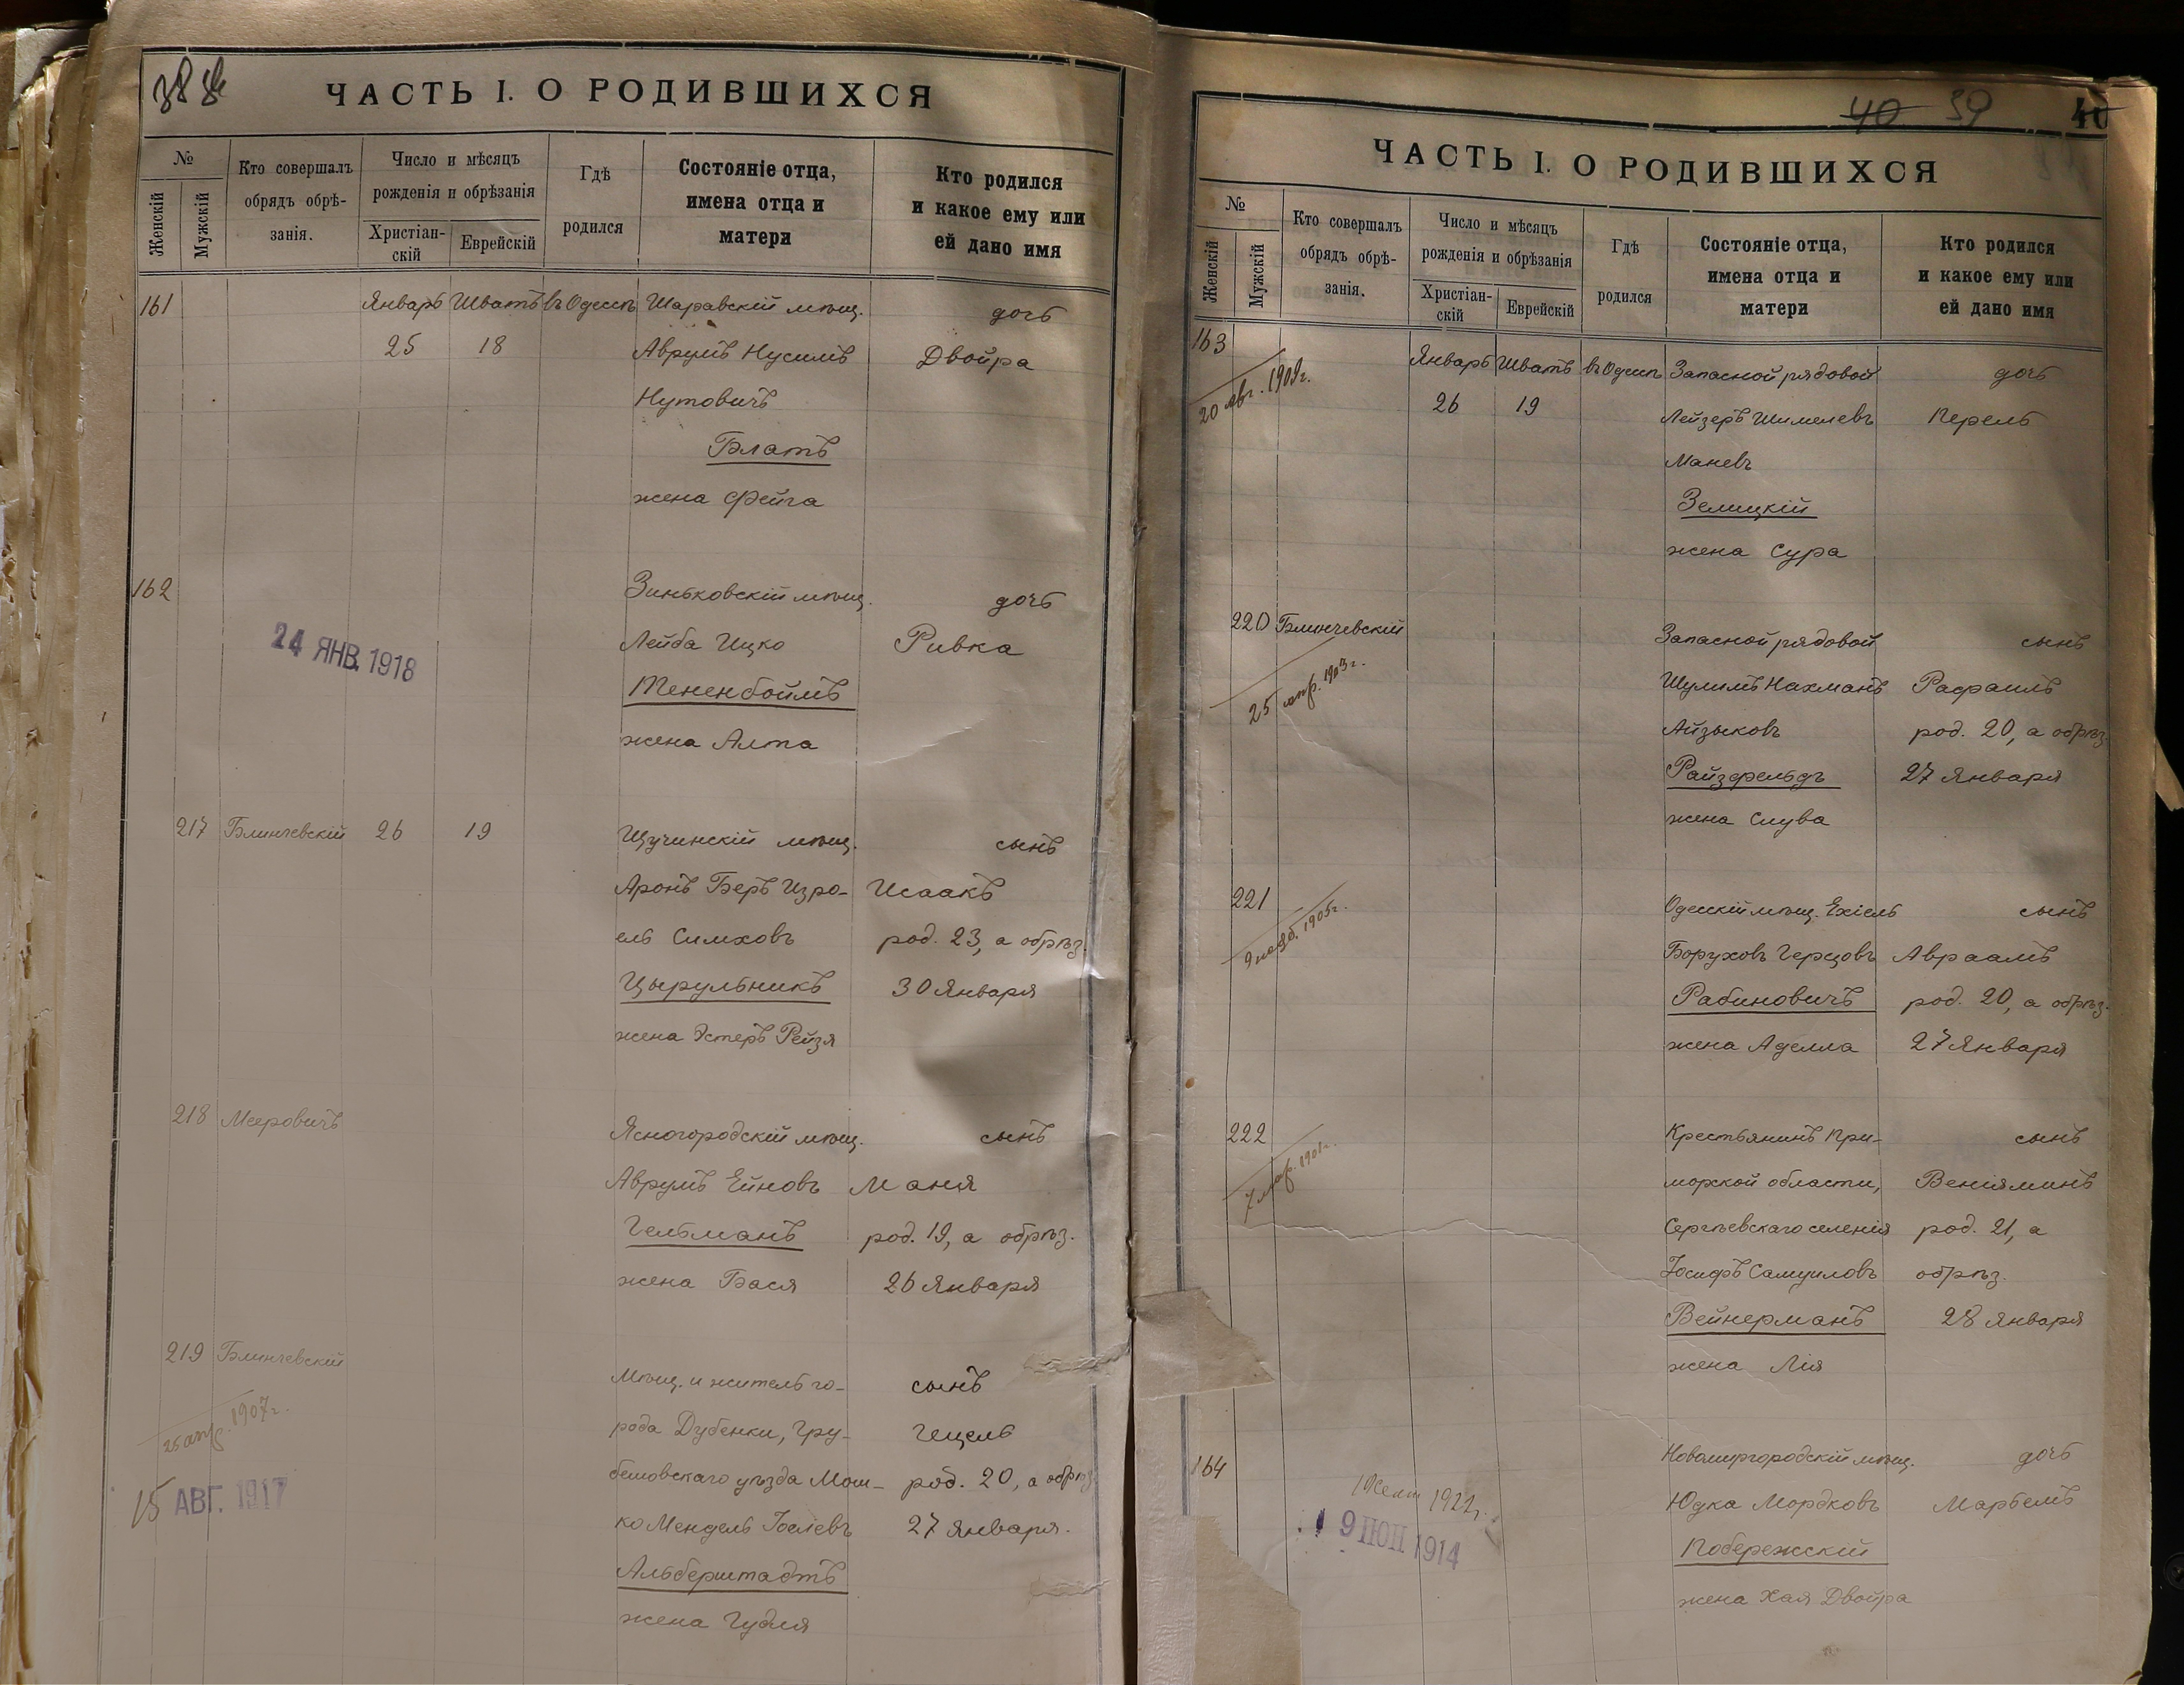 38
ЧАСТЬ I. О РОДИВШИХСЯ
№
Женскій
Мужскій
Кто совершалъ
обрядъ обрѣ-
занія.
Число и мѣсяцъ
рожденія и обрѣзанія
Христіан-
скій
Еврейскій
Гдѣ
родился
Состояніе отца,
имена отца и
матери
Кто родился
и какое ему или
ей дано имя
161 Январь Шватъ въ Одессѣ Шаравскій мѣщ. дочь
25 18 Аврумъ Нусимъ Двойра
Нутовичъ
Блатъ
жена Фейга
162 Зиньковскій мѣщ. дочь
24 ЯНВ. 1918
Лейба Ицко Ривка
Тененбоймъ
жена Алта
217 Блинчевскій 26 19 Щучинскій мѣщ. сынъ
Аронъ Беръ Изро- Исаакъ
ель Симховъ род. 23, а обрѣз.
Цырульникъ 30 Января
жена Эстеръ Рейзя
218 Мееровичъ Ясногородскій мѣщ. сынъ
Аврумъ Ейновъ Маня
Гельманъ род. 19, а обрѣз.
жена Бася 26 Января
219 Блинчевскій Мѣщ. и житель го- сынъ
25 апр. 1907 г.
рода Дубенки, Гру- Гецель
15 АВГ. 1917
бешовскаго уѣзда Мош- род. 20, а обрѣз.
ко Мендель Іоелевъ 27 Января.
Альберштадтъ
жена Гудля
40 39 40
ЧАСТЬ I. О РОДИВШИХСЯ
№
Женскій
Мужскій
Кто совершалъ
обрядъ обрѣ-
занія.
Число и мѣсяцъ
рожденія и обрѣзанія
Христіан-
скій
Еврейскій
Гдѣ
родился
Состояніе отца,
имена отца и
матери
Кто родился
и какое ему или
ей дано имя
163 Январь Шватъ въ Одессѣ Запасной рядовой дочь
20 авг. 1909 г.
26 19 Лейзеръ Шимелевъ Перель
Маневъ
Зелицкій
жена Сура
220 Блинчевскій Запасной рядовой сынъ
25 апр. 1903 г.
Шулимъ Нахманъ Рафаилъ
Айзыковъ род. 20, а обрѣз.
Райзфельдъ 27 Января
жена Слува
221 Одесскій мѣщ. Ехіель сынъ
1905 г.
Боруховъ Герцовъ Авраамъ
Рабиновичъ род. 20, а обрѣз.
жена Аделла 27 Января
222 Крестьянинъ При- сынъ
7 мар.
морской области, Веніяминъ
Сергѣевскаго селенія род. 21, а
Іосифъ Самуиловъ обрѣз.
Вейнерманъ 28 Января
жена Лія
164 Новомиргородскій мѣщ. дочь
1922 г.
Юдка Мордковъ Марьемъ
9 1914
Побережскій
жена Хая Двойра